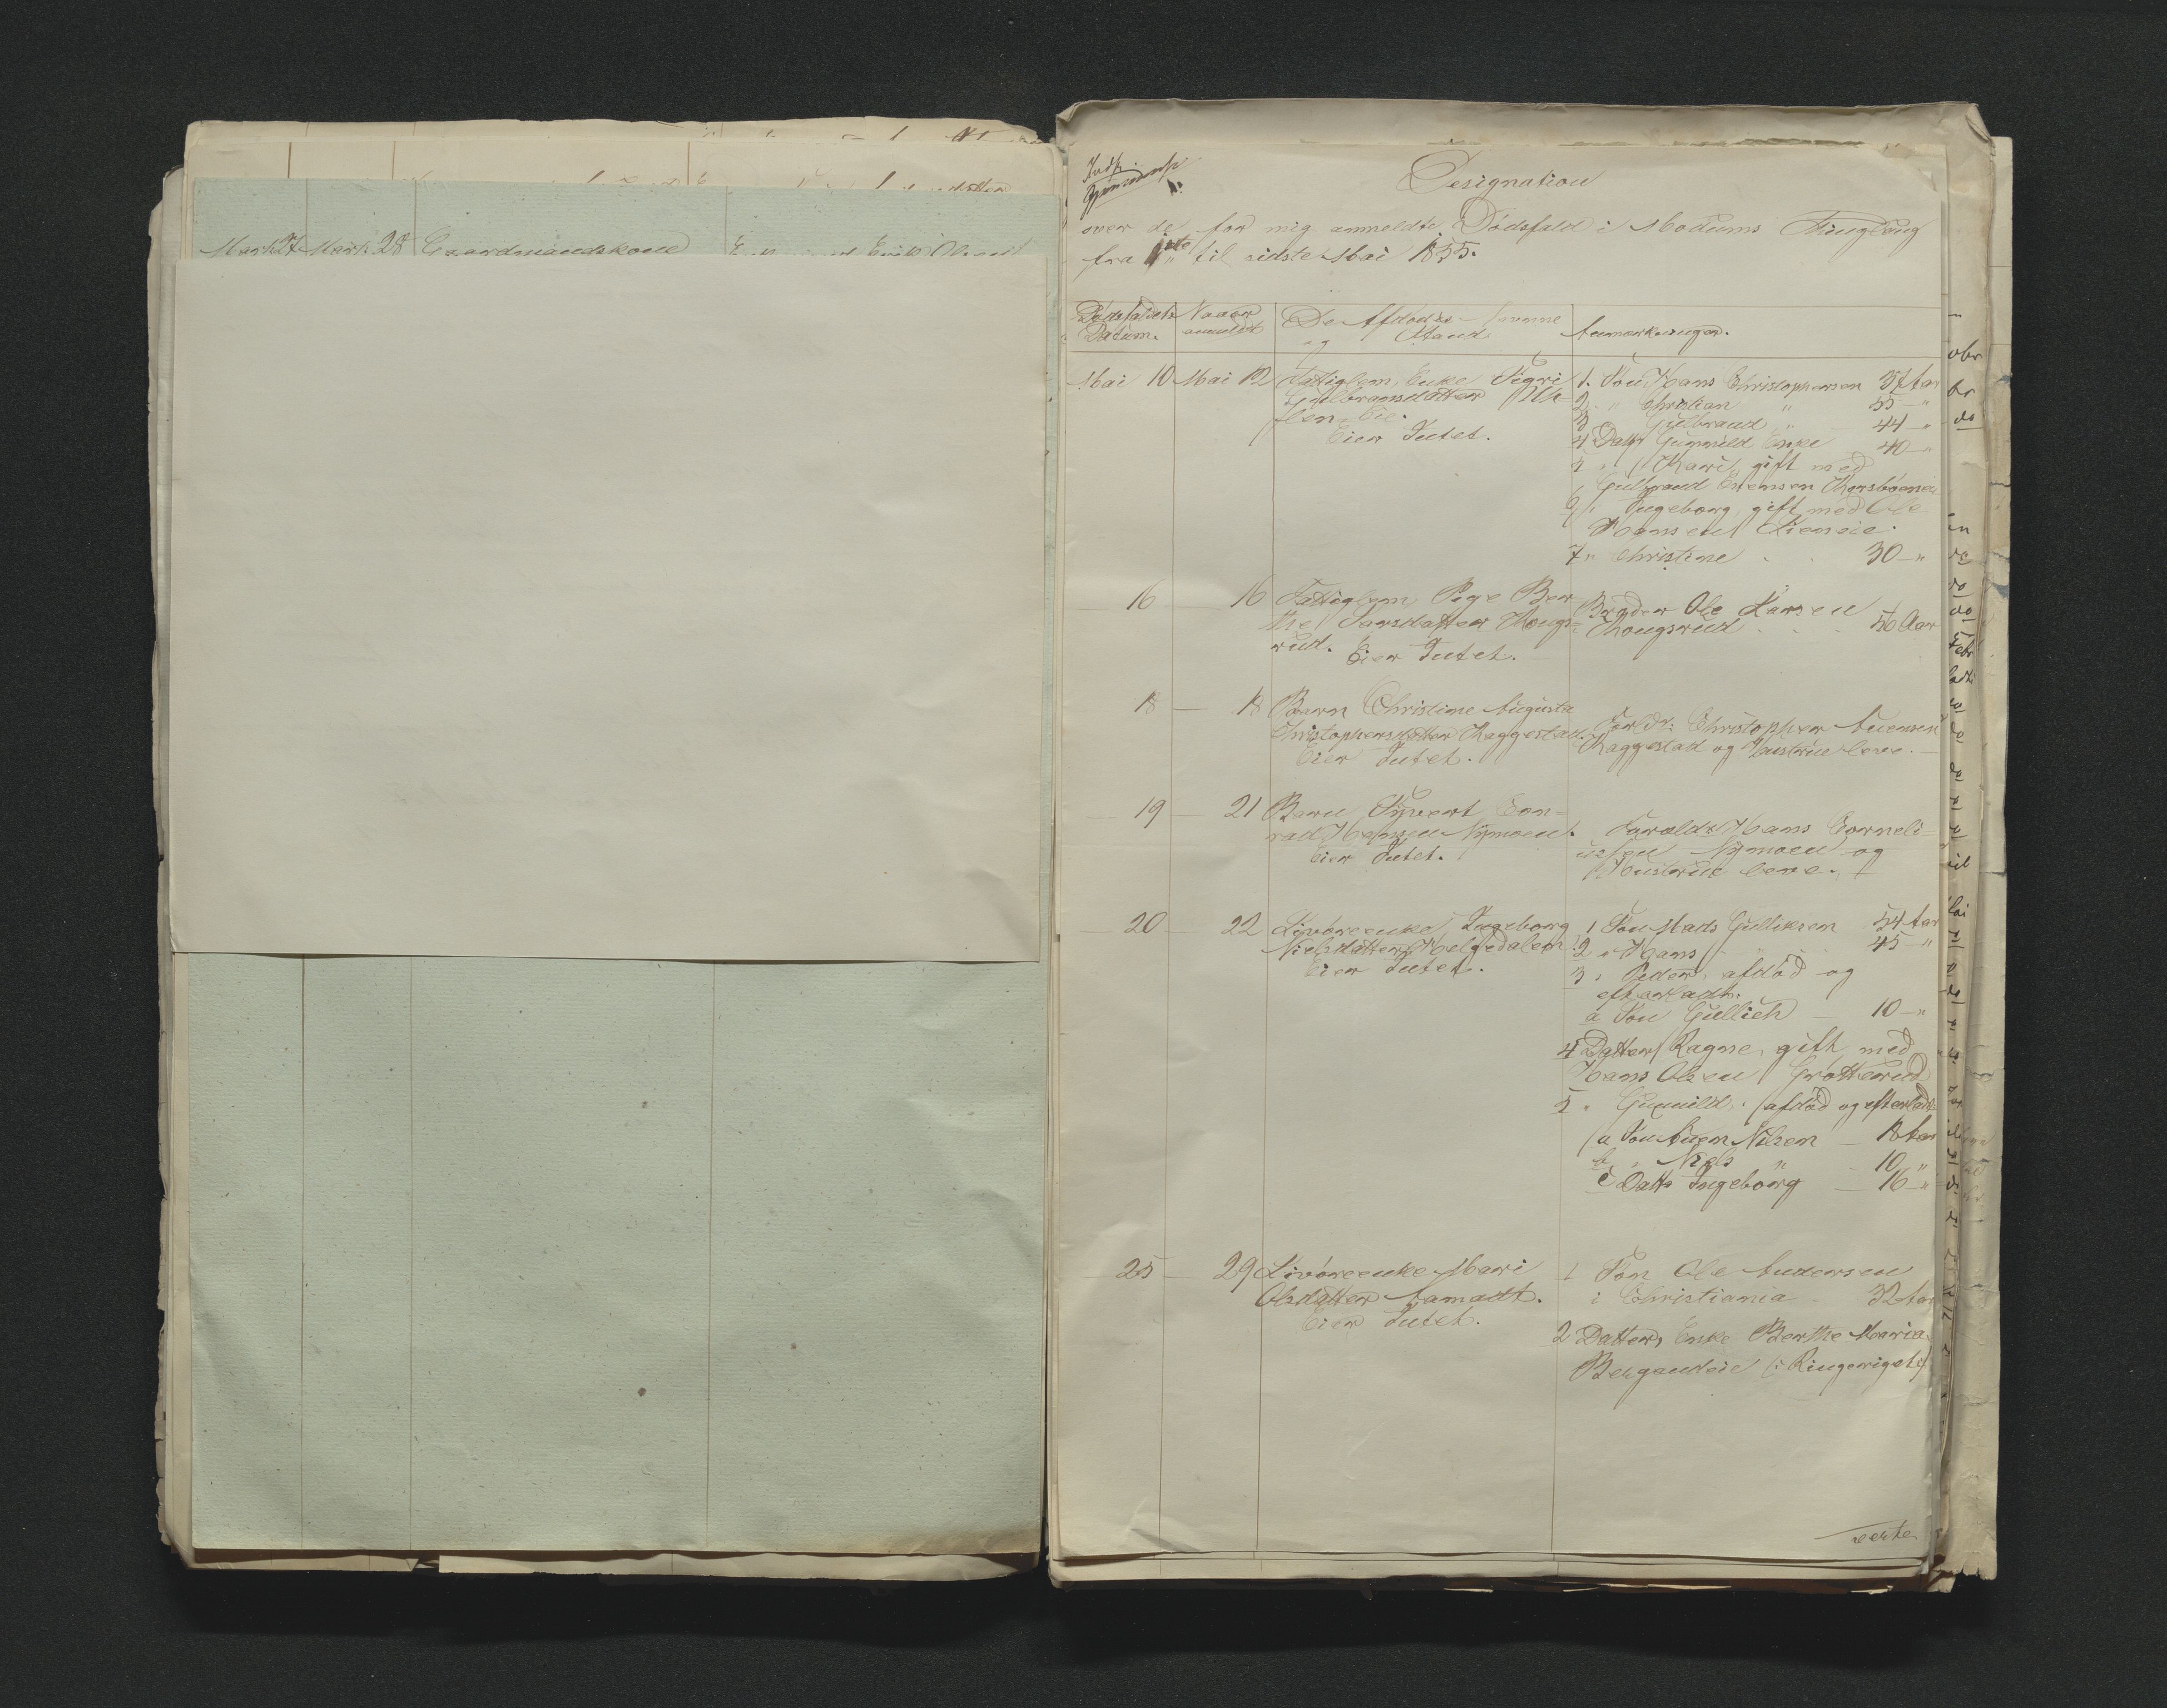 Marts 27 Marts 28 Gaardmandskone
Erik Olsen
Designation
over de for mig anmeldte Dödsfald i Modums Thinglaug
fra 1ste til sidste Mai 1855.
Dödsfaldets Datum.
Naar anmeldt
De Afdödes Navne
og Stand
Anmærkninger.
Mai 10 Mai 12 Fattiglem, Enke Sigri
Gulbrandsdatter
Eier Intet.
1. Sön Hans Christophersen 57 Aar
2. " Christian " 55 - "
3 Gulbrand " 44 - "
4 Dattr Gunnild Enke 40 - "
5 " Kari, gift med
Gulbrand Evensen
6 " Ingeborg, gift med Ole
Hansen Lienseie.
7 " Christine 30 - "
16 - 16 Fattiglem, Pige Ber
the Larsdatter Hougs-
rud.
Eier Intet.
Broder Ole Larsen
Hougsrud 56 Aar
18 - 18 Barn Christine Augusta
Christophersdatter Haggestad.
Eier Intet.
Forældr: Christopher Andersen
Haggestad og Hustrue leve.
19 - 21 Barn Syvert Con-
rad Hansen Nymoen.
Eier Intet.
Forældr Hans Corneli-
ussen Nymoen og
Hustrue leve.
20 - 22 Livöreenke, Ingeborg
Nielsdatter Helgedalen.
Eier Intet.
1 Sön Mads Gulliksen 54 Aar
2 " Hans " 45 - "
3 " Peder, afdöd og
efterladt:
a Sön Gullich - 10 - "
4 Datter, Ragne, gift med
Hans Olsen Grötterud
5 " Gunnild, afdöd og efterladt
a Sön Even Nilsen - 18 Aar
b " Niels " 10 - "
c Dattr Ingeborg - 16 - "
25 - 29 Livöreenke Mari
Olsdatter Aamodt.
Eier Intet.
1 Sön Ole Andersen
i Christiania - 32 Aar
2 Datter, Enke Berthe Maria
(i Ringeriget)
verte